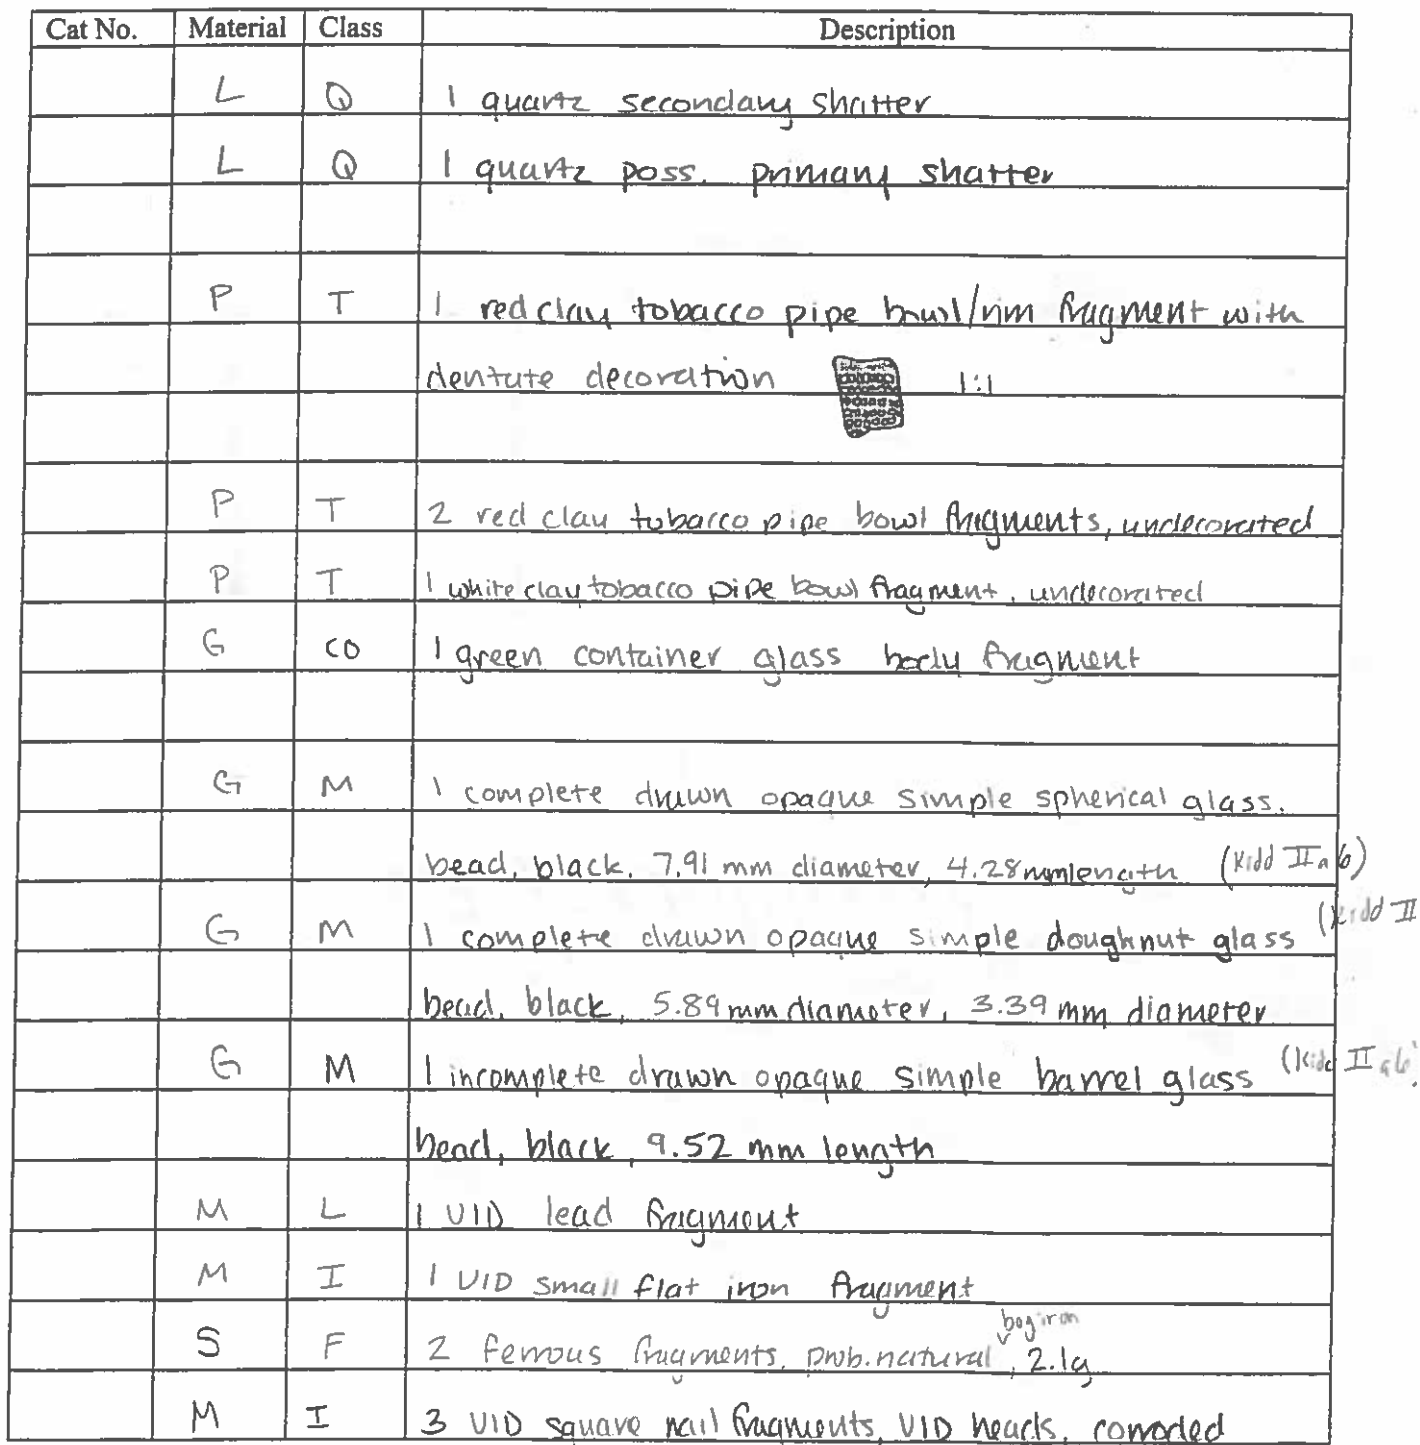 Cat No. Material Class Description
L Q 1 quartz secondary shatter
L Q 1 quartz poss. primary shatter
P T 1 red clay tobacco pipe bowl/rim fragment with
dentate decoration 1:1
P T 2 red clay tobacco pipe bowl fragments, undecorated
P T 1 white clay tobacco pipe bowl fragment, undecorated
G CO 1 green container glass body fragment
G M 1 complete drawn opaque simple spherical glass.
bead, black, 7.91 mm diameter, 4.28 mm length (Kidd IIa6)
G M 1 complete drawn opaque simple doughnut glass (Kidd II
bead, black, 5.89 mm diameter, 3.39 mm diameter
G M 1 incomplete drawn opaque simple barrel glass (Kidd IIa6)
bead, black, 9.52 mm length
M L 1 UID lead fragment
M I 1 UID small flat iron fragment
bog iron
S F 2 ferrous fragments, prob. natural, 2.1g
M I 3 UID square nail fragments, UID heads, corroded